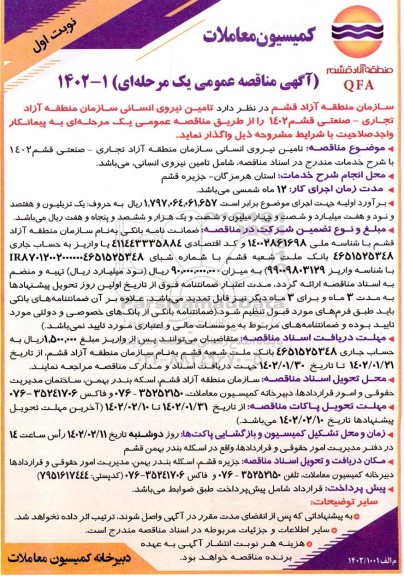 نوبت اول
کمیسیون معاملات
منطقه آزاد قشم
QFA
(آگهی مناقصه عمومی یک مرحله‌ای) ۱-۱۴۰۲
سازمان منطقه آزاد قشم در نظر دارد تامین نیروی انسانی سازمان منطقه آزاد
تجاری - صنعتی قشم ۱۴۰۲ را از طریق مناقصه عمومی یک مرحله‌ای به پیمانکار
واجد صلاحیت با شرایط مشروحه ذیل واگذار نماید.
موضوع مناقصه: تامین نیروی انسانی سازمان منطقه آزاد تجاری - صنعتی قشم ۱۴۰۲
با شرح خدمات مندرج در اسناد مناقصه، شامل تامین نیروی انسانی، می‌باشد.
محل انجام شرح خدمات: استان هرمزگان- جزیره قشم
مدت زمان اجرای کار: ۱۲ ماه شمسی می‌باشد.
برآورد اولیه جهت اجرای موضوع برابر است ۱,۷۹۷,۰۶۴,۰۶۱,۶۵۷ ریال به حروف: یک تریلیون و هفتصد
و نود و هفت میلیارد و شصت و چهار میلیون و شصت و یک هزار و ششصد و پنجاه و هفت ریال می‌باشد.
مبلغ و نوع تضمین شرکت در مناقصه: ضمانت نامه بانکی به‌نام سازمان منطقه آزاد
قشم با شناسه ملی ۱۴۰۰۲۸۶۱۶۹۸ و کد اقتصادی ۴۱۱۴۴۳۳۳۵۸۸۴ یا واریز به حساب جاری
۴۶۵۱۵۲۵۳۴۸ بانک ملت شعبه قشم با شماره شبای
با شناسه واریز ۹۹۰۰۹۸۰۳۱۲۹ به میزان ۹۰,۰۰۰,۰۰۰,۰۰۰ ریال (نود میلیارد ریال) تهیه و منضم
به اسناد مناقصه ارائه گردد، مدت اعتبار ضمانتنامه فوق از تاریخ اولین روز تحویل پیشنهادها
به مدت ۳ ماه و برای ۳ ماه دیگر نیز قابل تمدید می‌باشد. علاوه بر آن ضمانتنامه‌های بانکی
باید طبق فرم‌های مورد قبول تنظیم شود (ضمانتنامه بانکی از بانک‌های خصوصی و دولتی مورد
تایید بوده و ضمانتنامه‌های مربوط به موسسات مالی و اعتباری مورد تایید نمی‌باشد.)
مهلت دریافت اسناد مناقصه: متقاضیان می‌توانند پس از واریز مبلغ ۱,۵۰۰,۰۰۰ ریال به
حساب جاری ۴۶۵۱۵۲۵۳۴۸ بانک ملت شعبه قشم به‌نام سازمان منطقه آزاد قشم، از تاریخ
۱۴۰۲/۰۱/۲۱ تا تاریخ ۱۴۰۲/۰۱/۳۰ جهت دریافت اسناد و مدارک مناقصه مراجعه نمایند.
محل تحویل اسناد مناقصه: سازمان منطقه آزاد قشم، اسکله بندر بهمن، ساختمان مدیریت
حقوقی و امور قراردادها، دبیرخانه کمیسیون معاملات، ۳۵۲۵۲۱۵۰-۰۷۶ و فاکس ۳۵۲۴۱۷۰۶-۰۷۶
مهلت تحویل پاکات مناقصه: از تاریخ ۱۴۰۲/۰۱/۳۱ تا ۱۴۰۲/۰۲/۱۰ (آخرین مهلت تحویل
پیشنهادها تاریخ ۱۴۰۲/۰۲/۱۰ می‌باشد.)
زمان و محل تشکیل کمیسیون و بازگشایی پاکت‌ها: روز دوشنبه تاریخ ۱۴۰۲/۰۲/۱۱ راس ساعت ۱۴
در دفتر مدیریت امور حقوقی و قراردادها، واقع در اسکله بندر بهمن قشم
مکان دریافت و تحویل اسناد مناقصه: جزیره قشم، اسکله بندر بهمن، مدیریت امور حقوقی و قراردادها
دبیرخانه کمیسیون معاملات، تلفن ۳۵۲۵۲۱۵۰-۰۷۶ و فاکس ۳۵۲۴۱۷۰۶-۰۷۶ (کدپستی: ۷۹۵۱۶۱۷۴۴۴)
پیش پرداخت: قرارداد شامل پیش‌پرداخت طبق ضوابط می‌باشد.
سایر توضیحات:
به پیشنهاداتی که پس از انقضای مدت مقرر در آگهی واصل شوند، ترتیب اثر داده نخواهد شد.
سایر اطلاعات و جزئیات مربوطه در اسناد مناقصه مندرج است.
هزینه هر نوبت انتشار آگهی به عهده
برنده مناقصه خواهد بود.
دبیرخانه کمیسیون معاملات
م الف ۱۴۰۲/۱۰۰۱